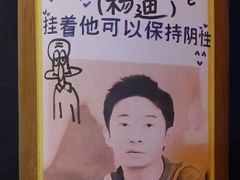 (杨迪)
挂着他可以保持阴性